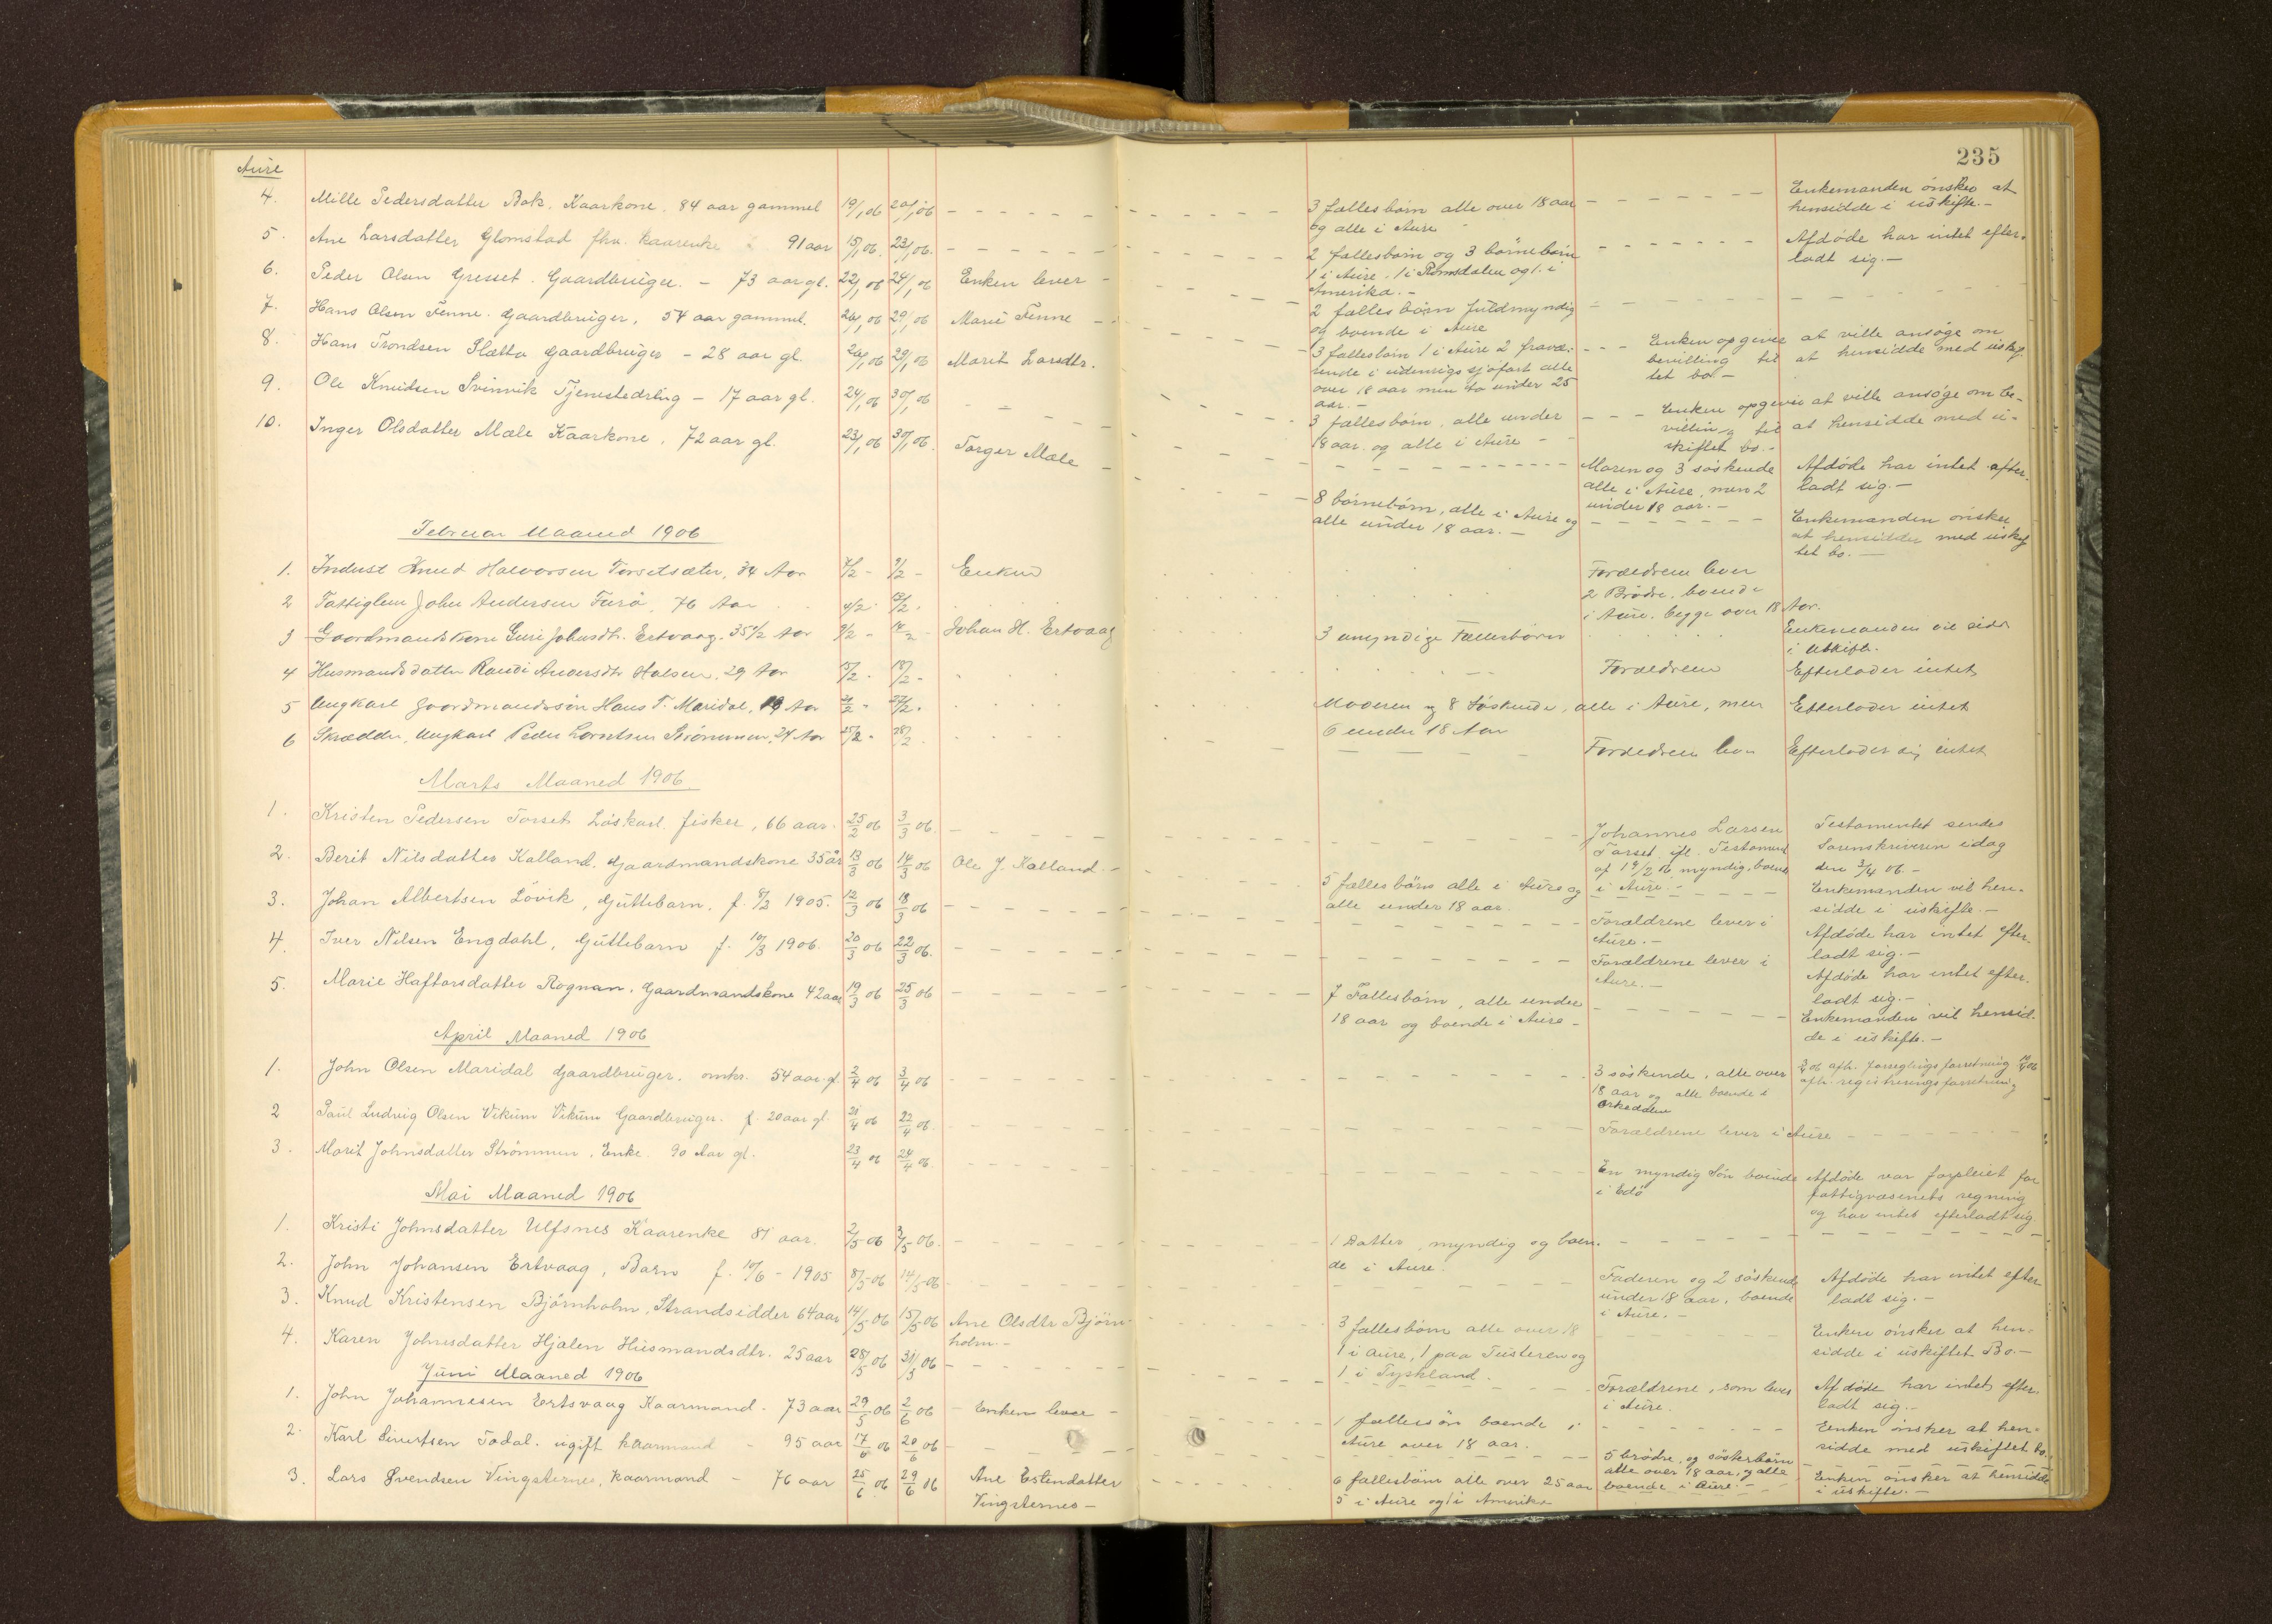 235
Aure
4. Mille Pedersdatter Bok. Kaarkone. 84 aar gammel 19/1 06 20/1 06
3 fællesbörn alle over 18 aar
og alle i Aure
Enkemanden önsker at
hensidde i uskifte.-
5. Ane Larsdatter Glomstad fhv. kaarenke 91 aar 15/1 06. 23/1 06.
2 fællesbörn og 3 börnebörn
1 i Aure. 1 i Romsdalen og 1. i
Amerika.-
Afdöde har intet efter-
ladt sig.-
6. Peder Olsen Gresset. Gaardbruger. - 73 aar gl. 22/1 06 24/1 06 Enken lever -
2 fælles börn fuldmyndig
og boende i Aure
7. Hans Olsen Tenne. Gaardbruger, 54 aar gammel. 24/1 06 29/1 06 Marie Tenne -
3 fællesbörn 1 i Aure 2 fravæ-
rende i udenrigs sjöfart alle
over 18 aar men to under 25
aar.-
Enken opgiver at ville ansöge om
bevilling til at hensidde med uskif-
tet bo.-
8. Hans Trondsen Slætta Gaardbruger - 28 aar gl. 24/1 06 29/1 06 Marit Larsdtr.
3 fællesbörn, alle under
18 aar. og alle i Aure -
Enken opgiver at ville ansöge om be-
villing til at hensidde med u-
skiftet bo.-
9. Ole Knudsen Svinvik Tjenestedreng - 17 aar gl. 24/1 06 30/1 06
Moren og 3 söskende
alle i Aure, men 2
under 18 aar.-
Afdöde har intet efter-
ladt sig.-
10. Inger Olsdatter Mæle Kaarkone, 72 aar gl. 23/1 06 30/1 06. Torger Mæle -
8 börnebörn, alle i Aure og
alle under 18 aar.-
Enkemanden önsker
at hensidde med uskif-
tet bo.-
Februar Maaned 1906
1. Inderst Knud Halvorsen Torsetsæter, 34 Aar 7/2 - 9/2 - Enken
Forældrene lever
2 Brödre, boende
i Aure. begge over 18 Aar.
2 Fattiglem John Andersen Furö, 76 Aar 4/2. 13/2.
3 Gaardmandskone Guri Johnsdtr. Ertvaag. 35 1/2 Aar 9/2 - 14/2 - Johan H. Ertvaag
3 umyndige Fællesbörn
Enkemanden vil sidde
i Uskifte.
4 Husmandsdatter Randi Andersdtr Halsen, 29 Aar 15/2. 18/2 -
Forældrene
Efterlader intet
5 Ungkarl Gaardmandssön Hans T. Maridal, 19 Aar 21/2 - 27/2.
Moderen og 8 Söskende, alle i Aure, men
6 under 18 Aar
Efterlader intet
6 Skrædder, Ungkarl Peder Lorntsen Strömmen, 24 Aar 25/2. 28/2.
Forældrene lever
Efterlader sig intet
Marts Maaned 1906.
1. Kristen Pedersen Torset Löskarl. fisker, 66 aar. 25/2 06 3/3 06.
Johannes Larsen
Torset ifl. Testament
af 19/2 06 myndig, boende
i Aure.-
Testamentet sendes
Sorenskriveren idag
den 3/4 06.-
2. Berit Nilsdatter Kalland. Gaardmandskone 35 år 13/3 06 14/3 06 Ole J. Kalland.-
5 fællesbörn alle i Aure og
alle under 18 aar.
Enkemanden vil hen-
sidde i uskifte.-
3. Johan Albertsen Lövik, Guttebarn. f. 8/2 1905. 12/3 06 18/3 06
Forældrene lever i
Aure.-
Afdöde har intet efter-
ladt sig.-
4. Iver Nilsen Engdahl, Guttebarn f. 10/3 1906. 20/3 06 22/3 06.
Forældrene lever i
Aure.-
Afdöde har intet efter-
ladt sig.-
5. Marie Haftorsdatter Rognan. Gaardmandskone 42 aar 19/3 06 25/3 06
7 Fællesbörn, alle under
18 aar og boende i Aure -
Enkemanden vil hensid-
de i uskifte.-
April Maaned 1906
1. John Olsen Maridal Gaardbruger. omkr. 54 aar. gl. 2/4 06 3/4 06
3 söskende, alle over
18 aar og alle boende i
Orkedalen
3/4 06 afh. forseglingsforretning 06
afh. registreringsforretning
2 Paul Ludvig Olsen Vikum Vikum Gaardbruger. f. 20 aar gl. 21/4 06 22/4 06.
Forældrene lever i Aure
3. Marit Johnsdatter Strömmen, Enke. 90 Aar gl. 23/4 06 24/4 06.
En myndig Sön boende
i Edö
Afdöde var forpleiet for
fattigvæsenets regning
og har intet efterladt sig.
Mai Maaned 1906
1. Kristi Johnsdatter Ulfsnes Kaarenke 81 aar. 2/5 06 3/5 06.
1 Datter, myndig og boen-
de i Aure.
2. John Johansen Ertvaag, Barn f. 10/6 - 1905 8/5 06 14/5 06
Faderen og 2 söskende
under 18 aar, boende
i Aure.-
Afdöde har intet efter-
ladt sig.-
3. Knud Kristensen Björnholm, Strandsidder 64 aar 14/5 06 15/5 06 Ane Olsdtr Björn-
holm.-
3 fællesbörn alle over 18
1 i Aure, 1 paa Tusteren og
1 i Tyskland.
Enken önsker at hen-
sidde i uskiftet Bo.-
4. Karen Johnsdatter Hjalen Husmandsdtr. 25 aar 28/5 06 31/5 06
Forældrene, som lever
i Aure.
Afdöde har intet efter-
ladt sig.-
Juni Maaned 1906
1. John Johannesen Ertsvaag Kaarmand. 73 aar 29/5 06 2/6 06 - Enken lever -
1 fællessön boende i
Aure over 18 aar.
Enken önsker at hen-
sidde med uskiftet bo.
2. Karl Sivertsen Todal. ugift kaarmand - 95 aar 17/6 06 20/6 06
5 brödre, og sösterbörn
alle over 18 aar, og alle
boende i Aure.-
3. Lars Svendsen Vingsternes, kaarmand - 76 aar 25/6 06 29/6 06 Ane Estendatter
Vingsternes -
6 fællesbörn alle over 25 aar
5 i Aure og 1 i Amerika
Enken önsker at hensidde
i uskifte.-